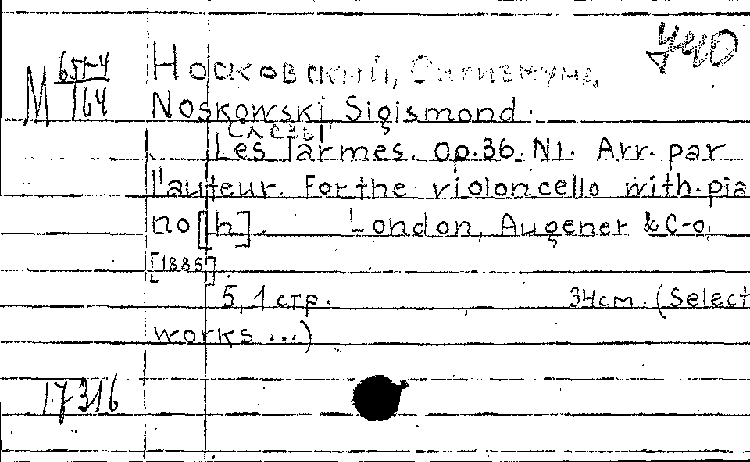 440
M 657-4/164
Носковский, Сигизмунд.
Noskowski, Sigismond.
Слёзы
Les larmes. Op. 36. N1. Arr. par
l'auteur. For the violoncello with pia
no [h]. London, Augener & C-o,
[1885].
5, 1 стр. 34 см. (Select
works ...)
17316